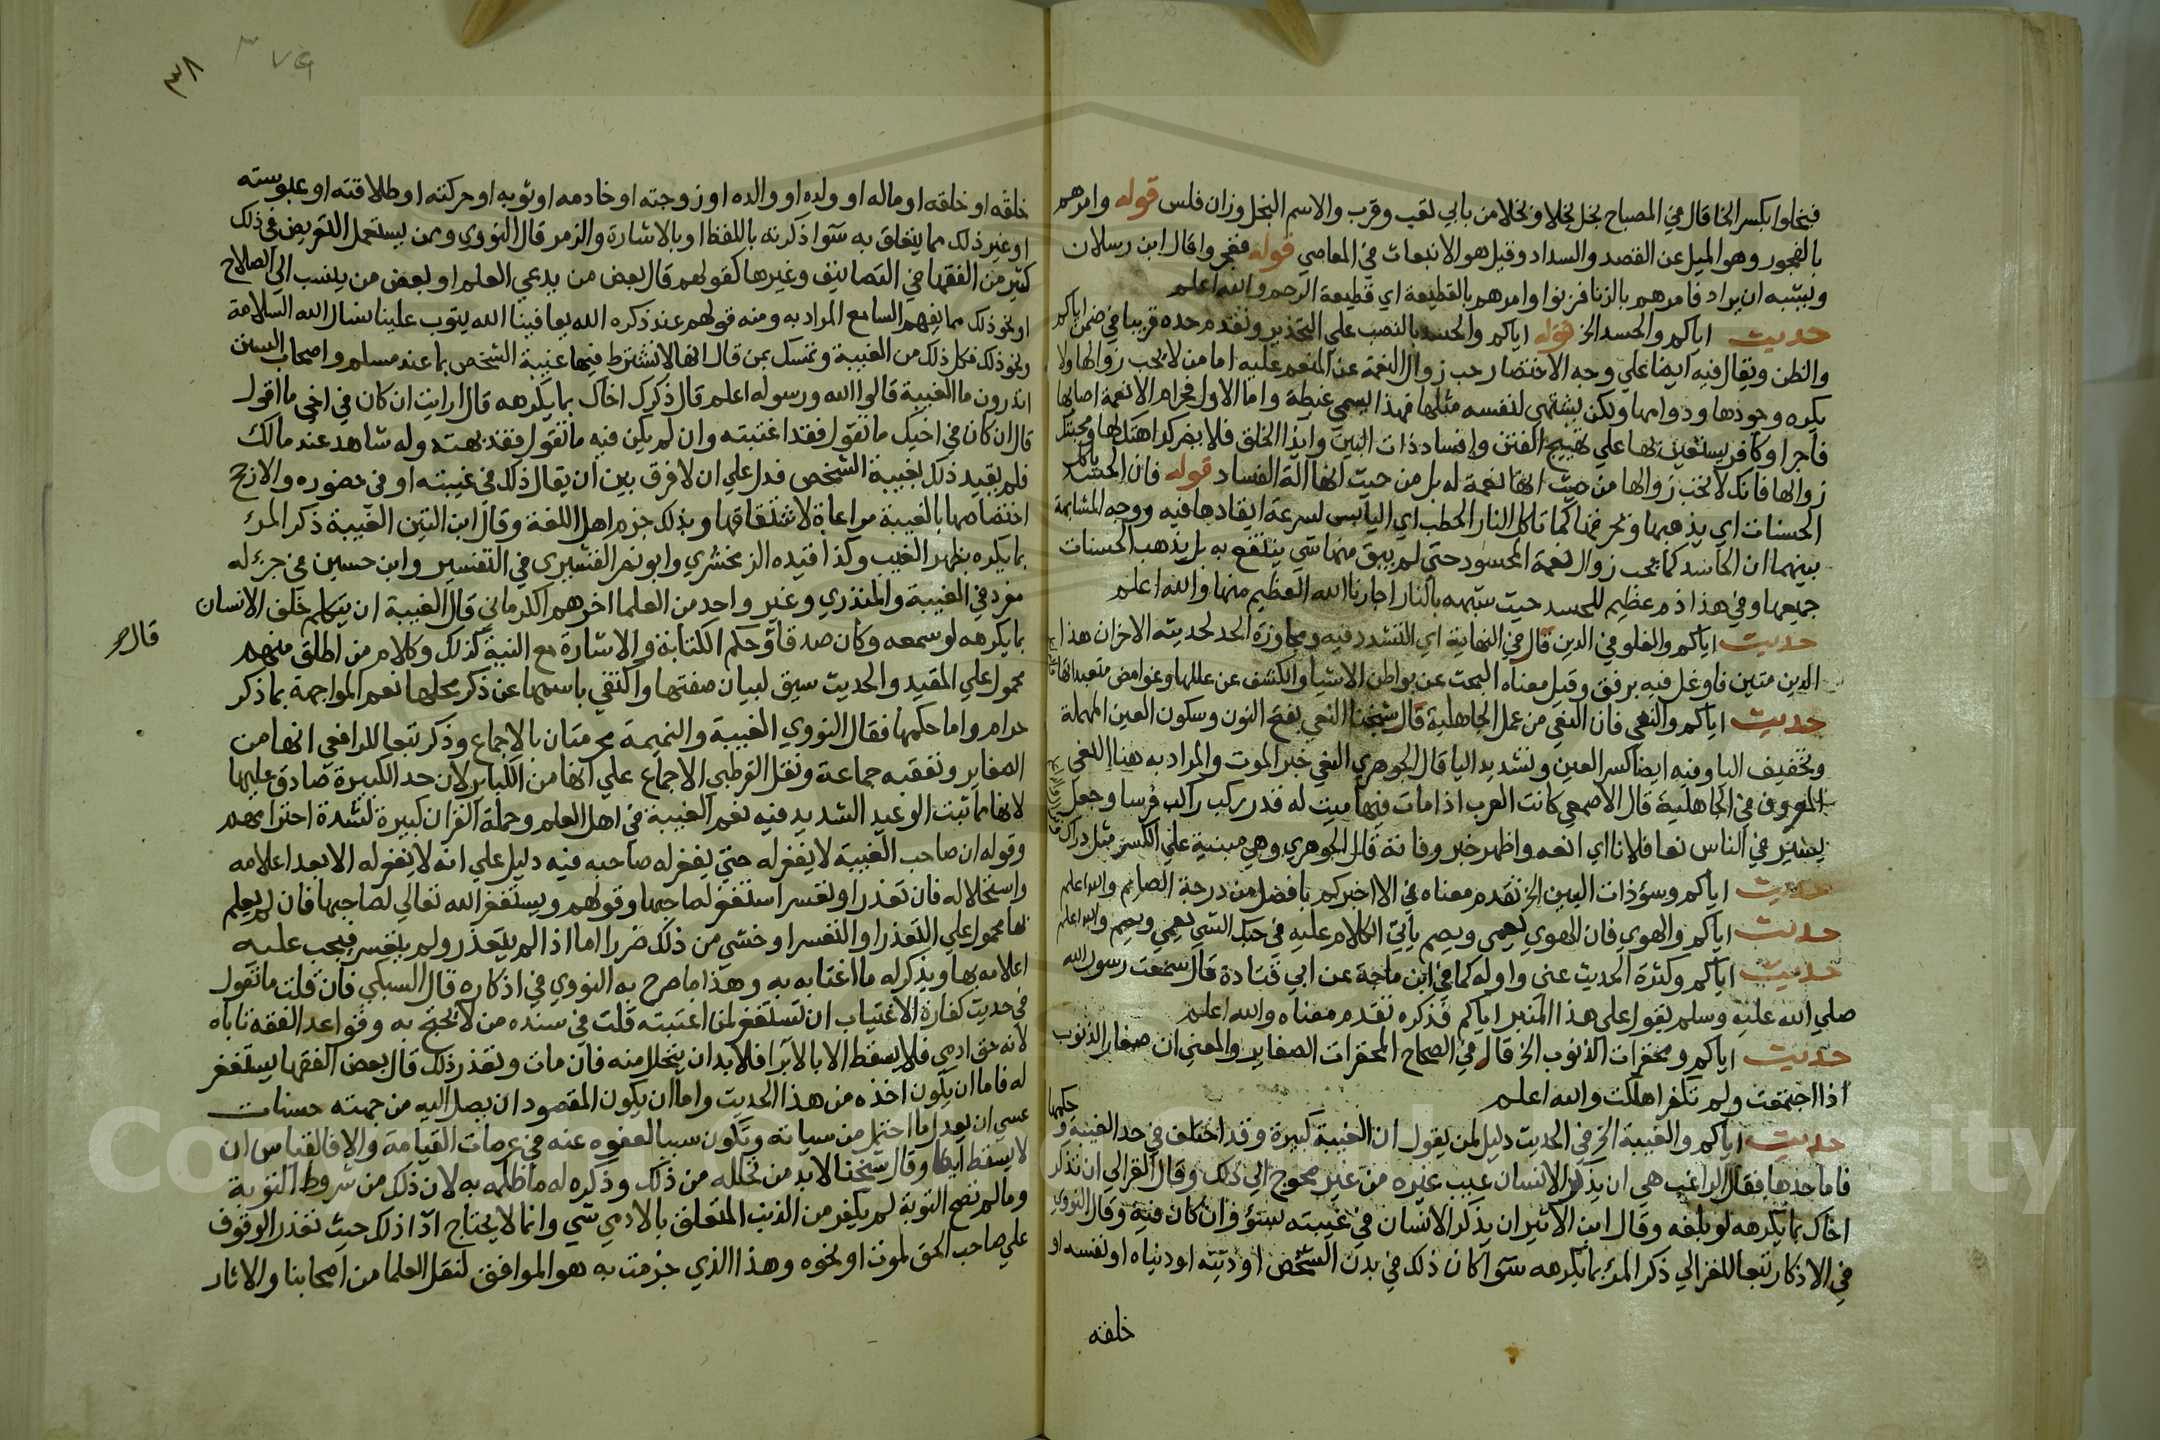 فبخلوا بكسر الخا قال في المصباح بخل بخلا وبخلا من بابي تعب وقرب والاسم البخل وزان فلس قوله وامرهم
بالفجور وهو الميل عن القصد والسداد وقيل هو الانبعاث في المعاصي قوله ففجروا قال ابن رسلان
ويشبه ان يراد فامرهم بالزنا فزنوا وامرهم بالقطيعة اي قطيعة الرحم والله اعلم
حديث اياكم والحسد الخ قوله اياكم والحسد بالنصب علي التحذير وتقدم حده قريبا في ضمن اياكم
والظن ويقال فيه ايضا علي وجه الاختصار حب زوال النعمة عن المنعم عليه اما من لا يحب زوالها ولا
يكره وجودها ودوامها ولكن يشتهي لنفسه مثلها فهذا يسمي غبطة واما الاول فحرام الا نعمة اصابها
فاجر او كافر يستعين بها علي تهييج الفتن وافساد ذات البين وايذا الخلق فلا يضرك كراهتك لها ومحبتك
زوالها فانك لا تحب زوالها من حيث انها نعمة له بل من حيث انها الة الفساد قوله فان الحسد ياكل
الحسنات اي يذهبها ويحرقها كما تاكل النار الحطب اي اليابس لسرعة ايقادها فيه ووجه المشابهة
بينهما ان الحاسد كما يحب زوال نعمة المحسود حتي لم يبق منها شي ينتفع به بل يذهب الحسنات
جميعها وفي هذا ذم عظيم للحسد حيث شبهه بالنار اجارنا الله العظيم منها والله اعلم
حديث اياكم والغلو في الدين قال في النهاية اي التشدد فيه ومجاوزة الحد لحديثه الاخر ان هذا
الدين متين فاوغل فيه برفق وقيل معناه البحث عن بواطن الاشيا والكشف عن عللها وغوامض متعبداتها
حديث اياكم والنعي فان النعي من عمل الجاهلية قال شيخنا النعي بفتح النون وسكون العين المهملة
وتخفيف اليا وفيه ايضا كسر العين وتشديد اليا قال الجوهري النعي خبر الموت والمراد به هنا النعي
المعروف في الجاهلية قال الاصمعي كانت العرب اذا مات فيها ميت له قدر ركب راكب فرسا وجعل
يسير في الناس نعا فلانا اي انعه واظهر خبر وفاته قال الجوهري وهي مبنية علي الكسر مثل دراك
حديث اياكم وسؤ ذات البين الخ تقدم معناه في الا اخبركم بافضل من درجة الصايم والله اعلم
حديث اياكم والهوي فان الهوي يعمي ويصم ياتي الكلام عليه في حبك الشي يعمي ويصم والله اعلم
حديث اياكم وكثرة الحديث عني واوله كما في ابن ماجة عن ابي قتادة قال سمعت رسول الله
صلي الله عليه وسلم يقول علي هذا المنبر اياكم فذكره تقدم معناه والله اعلم
حديث اياكم ومحقرات الذنوب الخ قال في الصحاح المحقرات الصغاير والمعني ان صغار الذنوب
اذا اجتمعت ولم تكفر اهلكت والله اعلم
حديث اياكم والغيبة الخ في الحديث دليل لمن يقول ان الغيبة كبيرة وقد اختلف في حد الغيبة وحكمها
فاما حدها فقال الراغب هي ان يذكر الانسان عيب غيره من غير محوج الي ذلك وقال الغزالي ان تذكر
اخاك بما يكرهه لو بلغه وقال ابن الاثير ان يذكر الانسان في غيبته بسؤ وان كان فيه وقال النووي
في الاذكار تبعا للغزالي ذكر المرء بما يكرهه سوا كان ذلك في بدن الشخص او دينه او دنياه او نفسه او
خلقه
٣٨
خلقه او خلقه او ماله او ولده او والده او زوجته او خادمه او ثوبه او حركته او طلاقته او عبوسته
او غير ذلك مما يتعلق به سوا ذكرته باللفظ او بالاشارة والرمز قال النووي وممن يستعمل التعريض في ذلك
كثير من الفقها في التصانيف وغيرها كقولهم قال بعض من يدعي العلم او بعض من ينسب الي الصلاح
او نحو ذلك مما يفهم السامع المراد به ومنه قولهم عند ذكره الله يعافينا الله يتوب علينا نسال الله السلامة
ونحو ذلك فكل ذلك من الغيبة وتمسك بمن قال انها لا تشترط فيها غيبة الشخص بما عند مسلم واصحاب السنن
اتدرون ما الغيبة قالوا الله ورسوله اعلم قال ذكرك اخاك بما يكرهه قال ارايت ان كان في اخي ما اقول
قال ان كان في اخيك ما تقول فقد اغتبته وان لم يكن فيه ما تقول فقد بهته وله شاهد عند مالك
فلم يقيد ذلك بغيبة الشخص فدل علي ان لا فرق بين ان يقال ذلك في غيبته او في حضوره والارجح
اختصاصها بالغيبة مراعاة لاشتقاقها وبذلك جزم اهل اللغة وقال ابن التين الغيبة ذكر المرء
بما يكره بظهر الغيب وكذا قيده الزمخشري وابو نصر القشيري في التفسير وابن حسين في جزء له
مفرد في الغيبة والمنذري وغير واحد من العلما اخرهم الكرماني قال الغيبة ان يتكلم خلف الانسان
بما يكرهه لو سمعه وكان صدقا وحكم الكتابة والاشارة مع النية كذلك وكلام من اطلق منهم
محمول علي المقيد والحديث سيق لبيان صفتها واكتفي باسمها عن ذكر محلها نعم المواجهة بما ذكر
حرام واما حكمها فقال النووي الغيبة والنميمة محرمتان بالاجماع وذكر تبعا للرافعي انها من
الصغاير وتعقبه جماعة ونقل القرطبي الاجماع علي انها من الكباير لان حد الكبيرة صادق عليها
لانها مما ثبت الوعيد الشديد فيه نعم الغيبة في اهل العلم وحملة القران كبيرة لشدة احترامهم
وقوله ان صاحب الغيبة لا يغفر له حتي يغفر له صاحبه فيه دليل علي انه لا يغفر له الا بعد اعلامه
واستحلاله فان تعذر او تعسر استغفر لصاحبها وقولهم ويستغفر الله تعالي لصاحبها فان لم يعلم
بها محمول علي التعذر او التعسر او خشي من ذلك ضررا اما اذا لم يتعذر ولم يتعسر فيجب عليه
اعلامه بها ويذكر له ما اغتابه به وهذا ما صرح به النووي في اذكاره قال السبكي فان قلت ما تقول
في حديث كفارة الاغتياب ان تستغفر لمن اغتبته قلت في سنده من لا يحتج به وقواعد الفقه تاباه
لانه حق ادمي فلا يسقط الا بالابرا فلابد ان يتحلل منه فان مات وتعذر ذلك قال بعض الفقها يستغفر
له فاما ان يكون اخذه من هذا الحديث واما ان يكون المقصود ان يصل اليه من جهته حسنات
عسي ان يعدل ما احتمل من سياته وتكون سببا لعفوه عنه في عرصات القيامة والا فالقياس ان
لا يسقط ايضا وقال شيخنا لابد من تحلله من ذلك وذكره له ما ظلمه به لان ذلك من شروط التوبة
وما لم تصح التوبة لم يكفر من الذنب المتعلق بالادمي شي وانما لا يحتاج الي ذلك حيث تعذر الوقوف
علي صاحب الحق لموت او نحوه وهذا الذي جزمت به هو الموافق لنقل العلما من اصحابنا والاثار